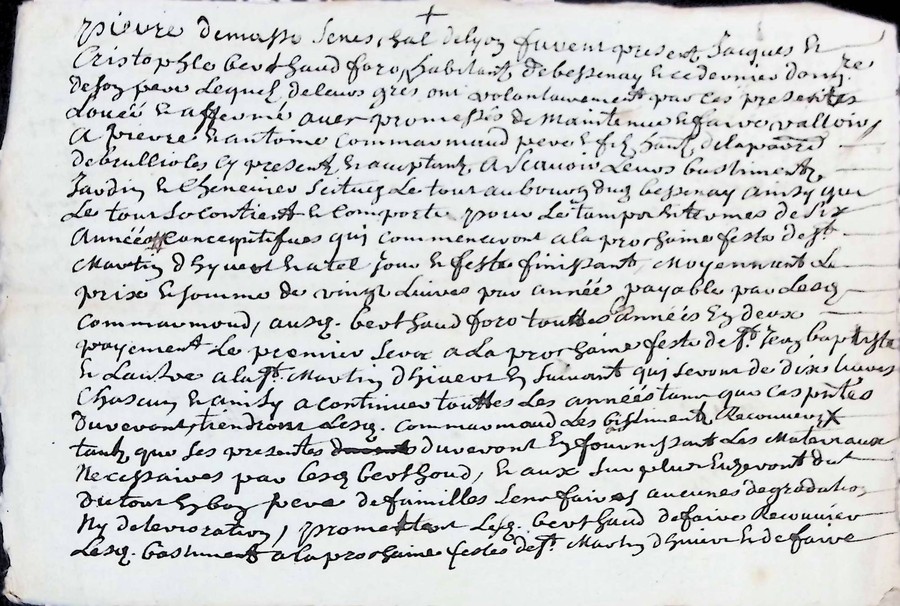 +
pierre demasso seneschal de lyon furent presents Jacques Et
Cristophle berthaud foro, habitant de bessenay Et ce dernier
de son pere Lequel de leurs gres ont volontairement par ces presentes
Loué Et affermé avec promesses de maintenir Et faire valloir
a pierre Et antoine Commarmoud pere Et fils de la
de brullioles Cy present Et aceptant, a scavoir Leurs bastiment
Jardin Et Chenevier scitués Le tout au bourg dud. bessenay ainsy que
Le tout se contient Et Comporte pour Le temps Et termes de six
années Concequtifues qui commenceront a la prochaine feste de st.
Martin d hyvert Et a tel jour Et feste finissant, Moyennant Le
prix Et somme de vingt Livres par année payable par Lesq.
Commarmoud, ausq. berthaud foro touttes années En deux
payement Le premier sera a La prochaine feste de st. Jean baptiste
Et Lautre a la st. Martin d hivert En suivant qui seront de dix Livres
Chascun Et ainsy a continuer touttes Les années tant que Ces pntes
dureront, tiendront Lesq. commarmoud Les bastiments Recouverts
tant que ses presentes dureront En fournissant Les Materiaux
Necessaires par Lesq. berthoud, Et aux surplus Useront du
du tout En bon pere de familles sans faires aucunes degradation
Ny deterioration, promettent Lesq. berthaud de faire Recouvrir
Lesq. bastiments a la prochaine festes de st. Martin d hivert Et de faire